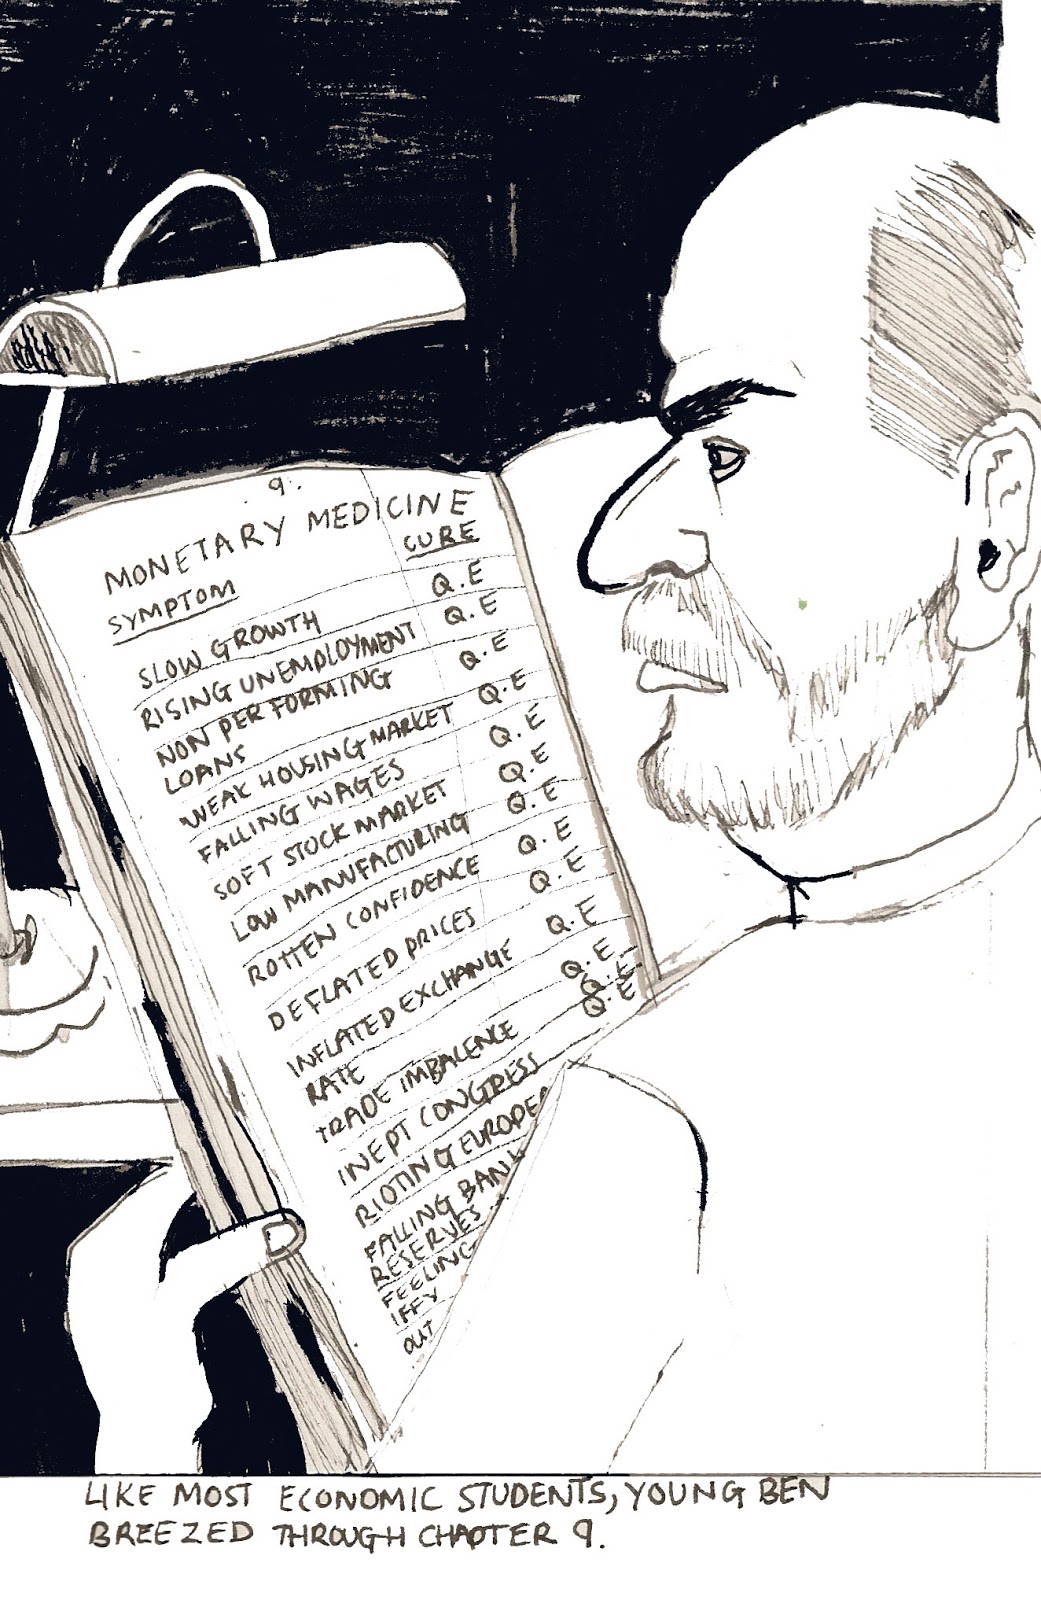 9.
MONETARY MEDICINE
SYMPTOM CURE
SLOW GROWTH Q.E
RISING UNEMPLOYMENT Q.E
NON PERFORMING Q.E
LOANS
WEAK HOUSING MARKET Q.E
FALLING WAGES Q.E
SOFT STOCK MARKET Q.E
LOW MANUFACTURING Q.E
ROTTEN CONFIDENCE Q.E
DEFLATED PRICES Q.E
INFLATED EXCHANGE Q.E
RATE
TRADE IMBALENCE Q.E
INEPT CONGRESS Q.E
RIOTING EUROPEA Q.E
FALLING BANK
RESERVES
FEELING
IFFY
OUT
LIKE MOST ECONOMIC STUDENTS, YOUNG BEN
BREEZED THROUGH CHAPTER 9.